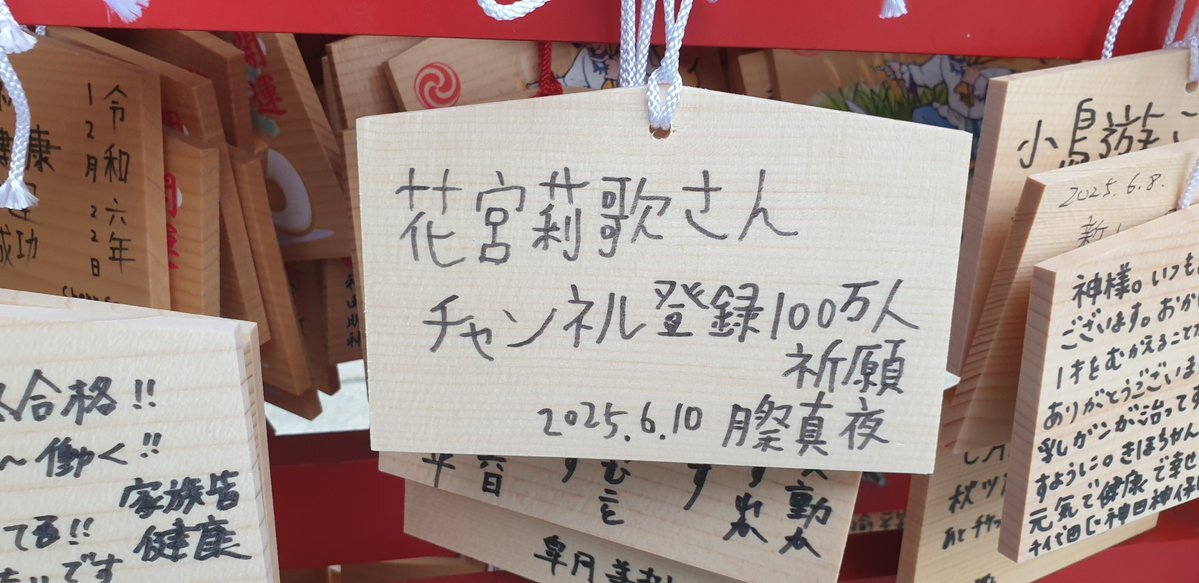 花宮莉歌さん
チャンネル登録100万人
祈願
2025.6.10 月祭真夜
令和六年
12月22日
健康
成功
合格!!
働く!!
家族皆
健康
てる!!
です
小鳥遊
2025.6.8.
新
神様。いつも
ございます。おか
1才をむかえること
ありがとうございま
乳がンが治ってす
すように。きほちゃん
元気で健康で幸せ
千代田区神田神保
皐月